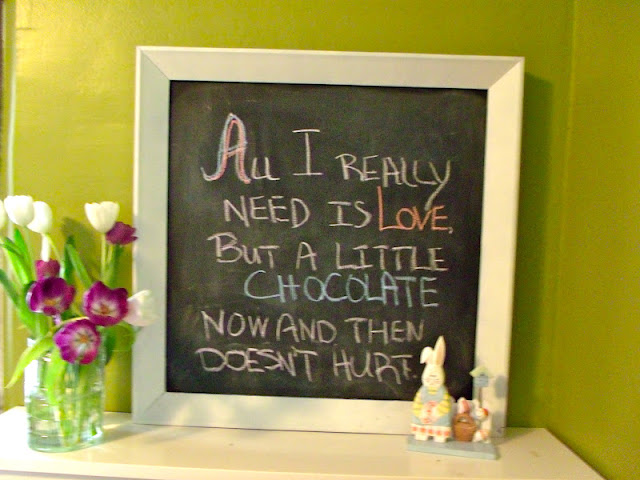 All I REALLY
NEED IS LOVE,
BUT A LITTLE
CHOCOLATE
NOW AND THEN
DOESN'T HURT.